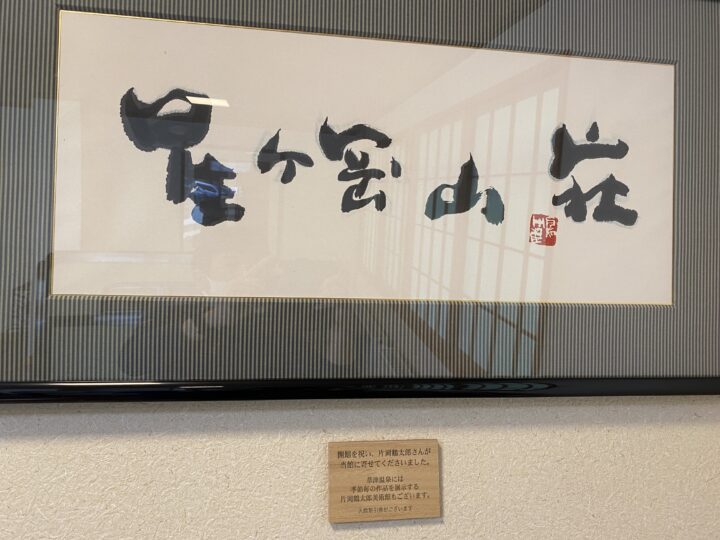 星ヶ岡山荘
開館を祝い、片岡鶴太郎さんが
当館に寄せてくださいました。
草津温泉には
季節毎の作品を展示する
片岡鶴太郎美術館もございます。
入館割引券がございます